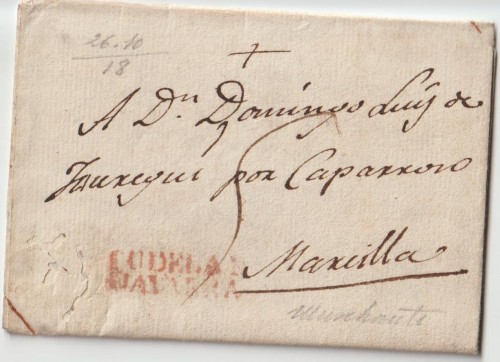 26.10
18
A Dn Domingo Luis de
Jauregui por Caparroso
5
Marcilla
TUDELA
NAVARRA
Murchante